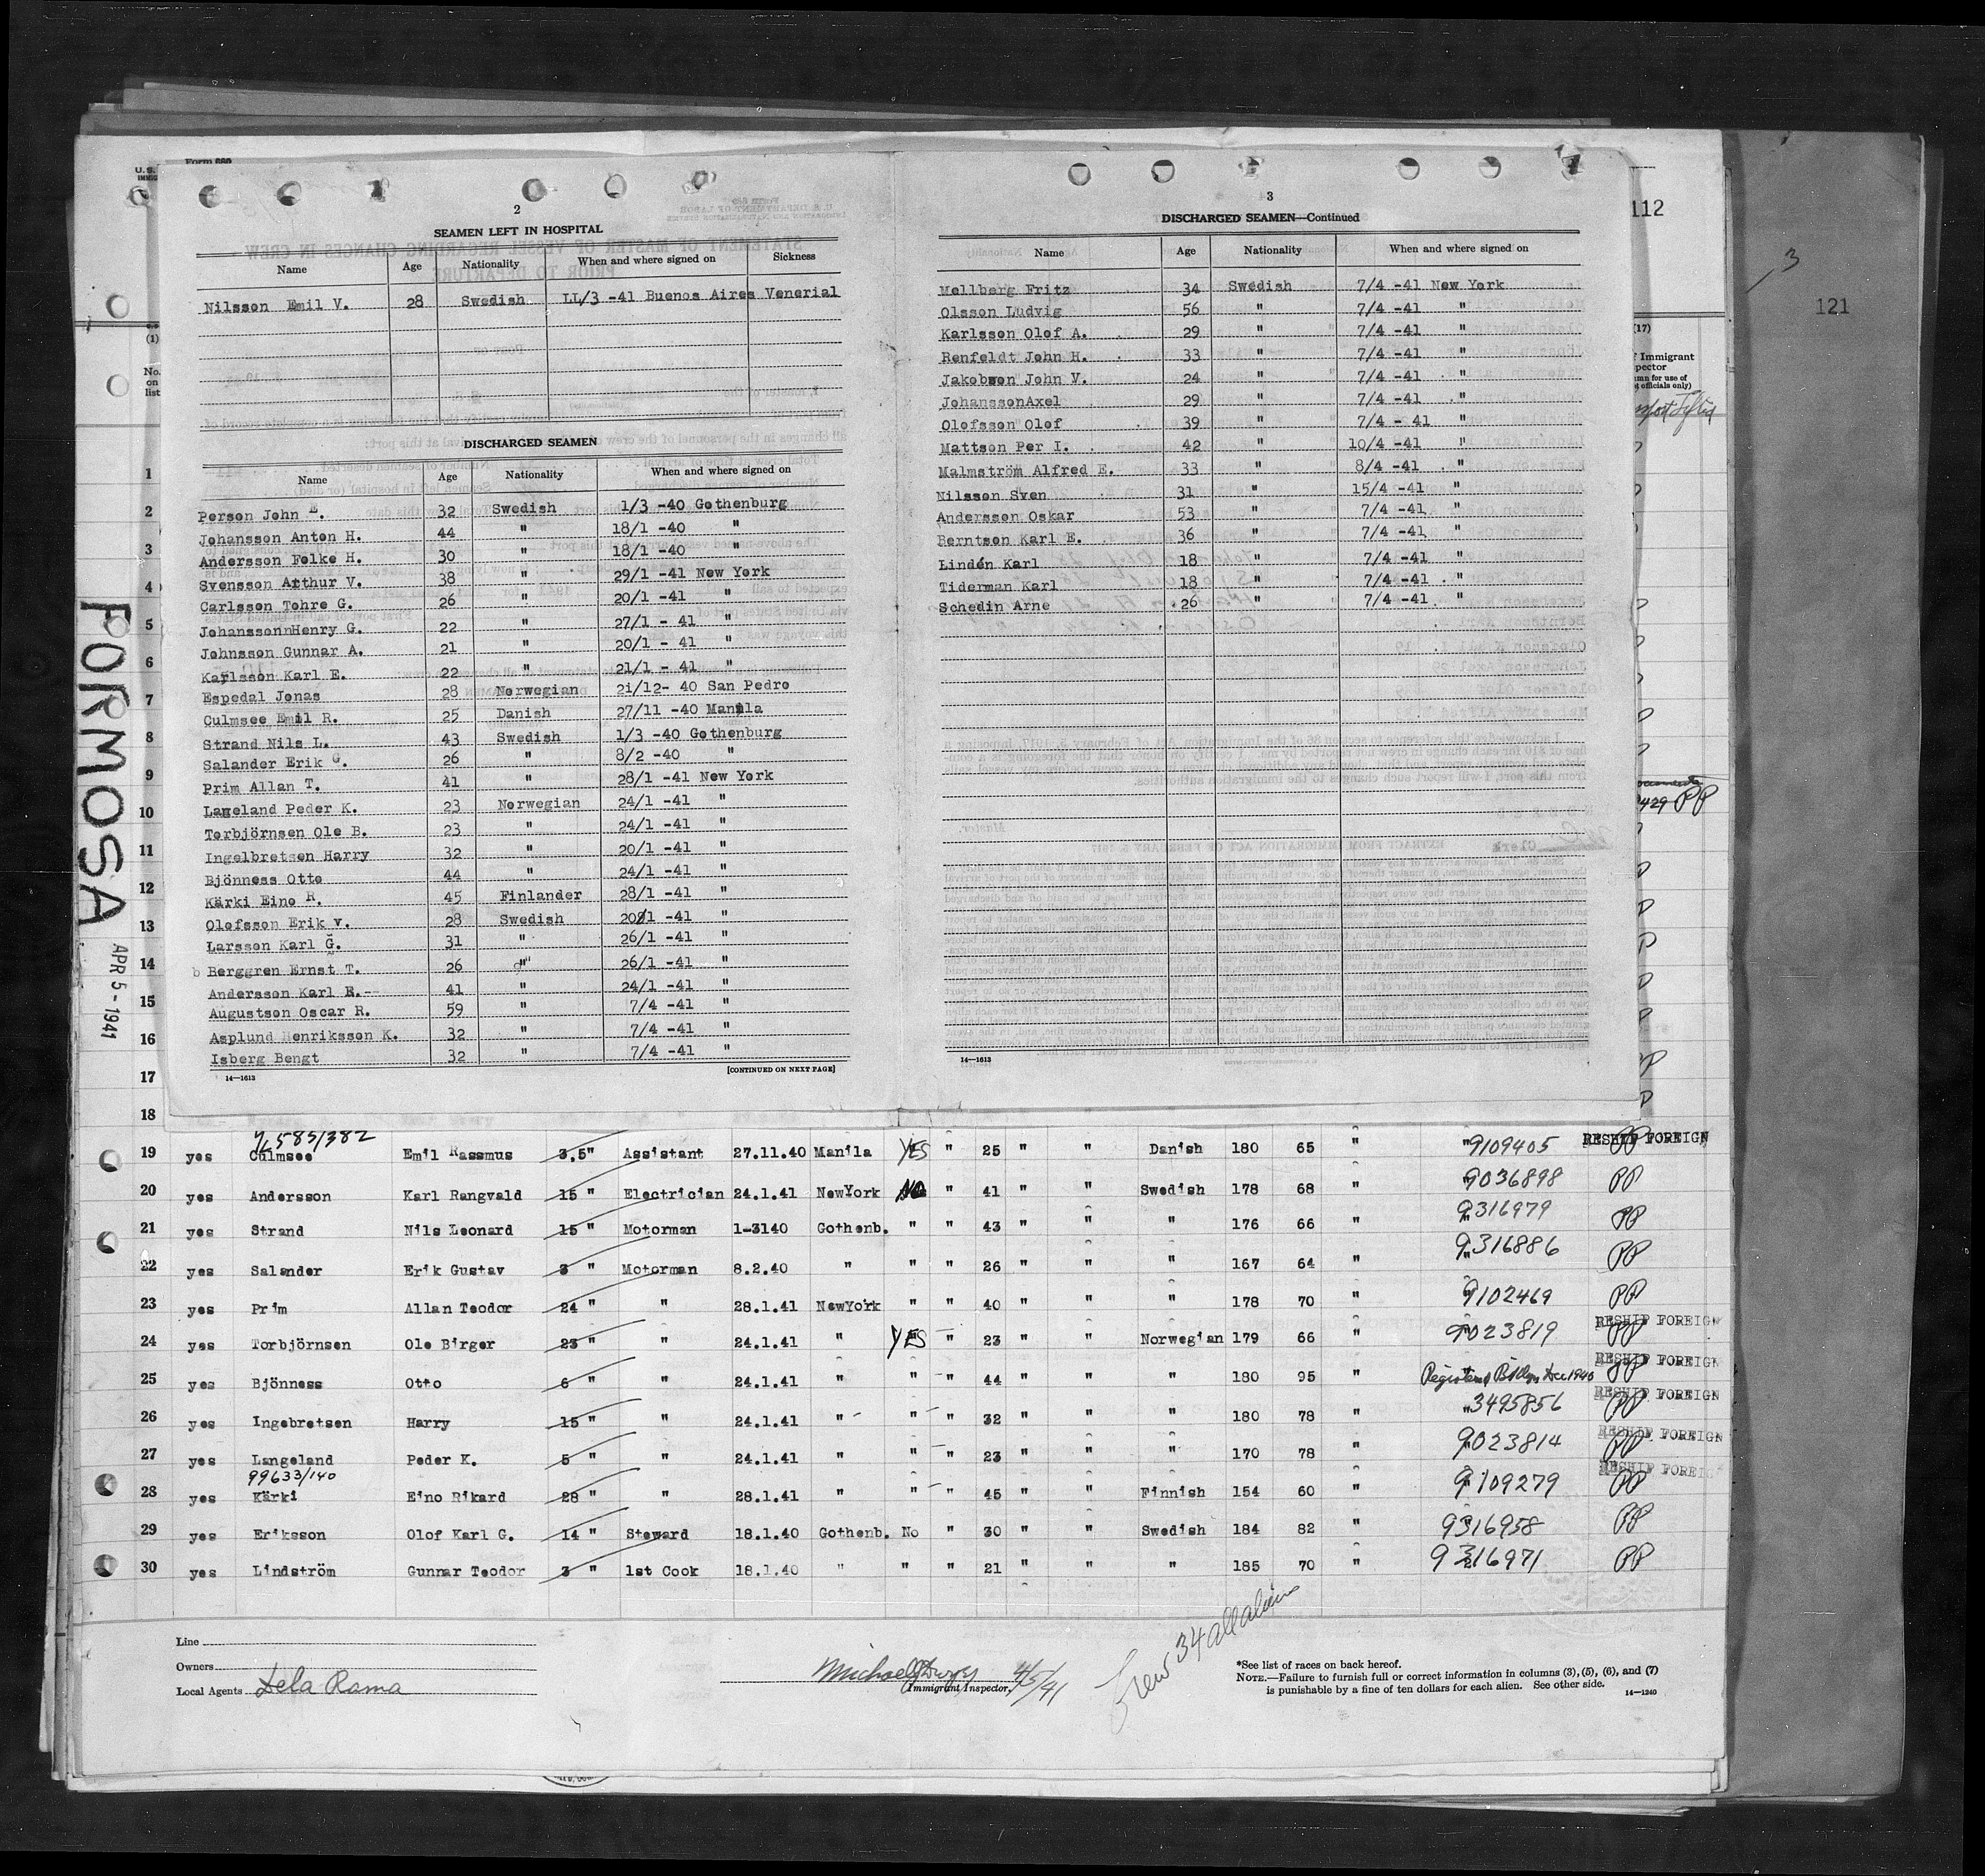 Form 680
U.S.
2
SEAMEN LEFT IN HOSPITAL
Name Age Nationality When and where signed on Sickness
Nilsson Emil V. 28 Swedish LL/3 -41 Buenos Aires Venerial
DISCHARGED SEAMEN
Name Age Nationality When and where signed on
Person John E. 32 Swedish 1/3 -40 Gothenburg
Johansson Anton H. 44 " 18/1 -40 "
Andersson Folke H. 30 " 18/1 -40 "
Svensson Arthur V. 38 " 29/1 -41 New York
Carlsson Tohre G. 26 " 20/1 -41 "
JohanssonnHenry G. 22 " 27/1 - 41 "
Johnsson Gunnar A. 21 " 20/1 - 41 "
Karlsson Karl E. 22 " 21/1 - 41 "
Espedal Jonas 28 Norwegian 21/12- 40 San Pedro
Culmsee Emil R. 25 Danish 27/11 -40 Manila
Strand Nils L. 43 Swedish 1/3 -40 Gothenburg
Salander Erik G. 26 " 8/2 -40 "
Prim Allan T. 41 " 28/1 -41 New York
Langeland Peder K. 23 Norwegian 24/1 -41 "
Torbjörnsen Ole B. 23 " 24/1 -41 "
Ingelbretsen Harry 32 " 20/1 -41 "
Bjönness Otto 44 " 24/1 -41 "
Kärki Eino R. 45 Finlander 28/1 -41 "
Olofsson Erik V. 28 Swedish 20/1 -41 "
Larsson Karl G. 31 " 26/1 -41 "
Berggren Ernst T. 26 " 26/1 -41 "
Andersson Karl R.- 41 " 24/1 -41 "
Augustson Oscar R. 59 " 7/4 -41 "
Asplund Henriksson K. 32 " 7/4 -41 "
Isberg Bengt 32 " 7/4 -41 "
14—1613 [CONTINUED ON NEXT PAGE]
3
DISCHARGED SEAMEN—Continued
Name Age Nationality When and where signed on
Mellberg Fritz 34 Swedish 7/4 -41 New York
Olsson Ludvig 56 " 7/4 -41 "
Karlsson Olof A. 29 " 7/4 -41 "
Renfeldt John H. 33 " 7/4 -41 "
Jakobson John V. 24 " 7/4 -41 "
JohanssonAxel 29 " 7/4 -41 "
Olofsson Olof 39 " 7/4 - 41 "
Mattson Per I. 42 " 10/4 -41 "
Malmström Alfred E. 33 " 8/4 -41 "
Nilsson Sven 31 " 15/4 -41 "
Andersson Oskar 53 " 7/4 -41 "
Berntson Karl E. 36 " 7/4 -41 "
Lindén Karl 18 " 7/4 -41 "
Tiderman Karl 18 " 7/4 -41 "
Schedin Arne 26 " 7/4 -41 "
14—1613
112
3
121
(17)
f Immigrant
pector
mn for use of
officials only)
429 PP
(1)
No.
on
list
1
2
3
4
5
6
7
8
9
10
11
12
13
14
15
16
17
18
FORMOSA
APR 5 - 1941
585/382
19 yes Culmsee Emil Rassmus 3,5" Assistant 27.11.40 Manila YES " 25 " " Danish 180 65 " 9109405 PP RESHIP FOREIGN
20 yes Andersson Karl Rangvald 15 " Electrician 24.1.41 NewYork NO " 41 " " Swedish 178 68 " 9036898 PP
21 yes Strand Nils Leonard 15 " Motorman 1-3140 Gothenb. " " 43 " " " 176 66 " 9316979 PP
22 yes Salander Erik Gustav 3 " Motorman 8.2.40 " " " 26 " " " 167 64 " 9316886 PP
23 yes Prim Allan Teodor 24 " " 28.1.41 NewYork " " 40 " " " 178 70 " 9102469 PP
24 yes Torbjörnsen Ole Birger 23 " " 24.1.41 " YES " 23 " " Norwegian 179 66 " 9023819 PP RESHIP FOREIGN
25 yes Bjönness Otto 6 " " 24.1.41 " " " 44 " " " 180 95 " Registered Bklyn Dec 1940 PP RESHIP FOREIGN
26 yes Ingebretsen Harry 15 " " 24.1.41 " " " 32 " " " 180 78 " 3495856 PP RESHIP FOREIGN
27 yes Langeland Peder K. 5 " " 24.1.41 " " " 23 " " " 170 78 " 9023814 PP RESHIP FOREIGN
99633/140
28 yes Kärki Eino Rikard 28 " " 28.1.41 " " " 45 " " Finnish 154 60 " 9109279 PP RESHIP FOREIGN
29 yes Eriksson Olof Karl G. 14 " Steward 18.1.40 Gothenb. No " 30 " " Swedish 184 82 " 9316958 PP
30 yes Lindström Gunnar Teodor 3 " 1st Cook 18.1.40 " " " 21 " " " 185 70 " 9316971 PP
Line
Owners
Local Agents Dela Rama
4/5/41
Immigrant Inspector.
Crew 34 all aliens
*See list of races on back hereof.
NOTE.—Failure to furnish full or correct information in columns (3), (5), (6), and (7)
is punishable by a fine of ten dollars for each alien. See other side. 14—1240